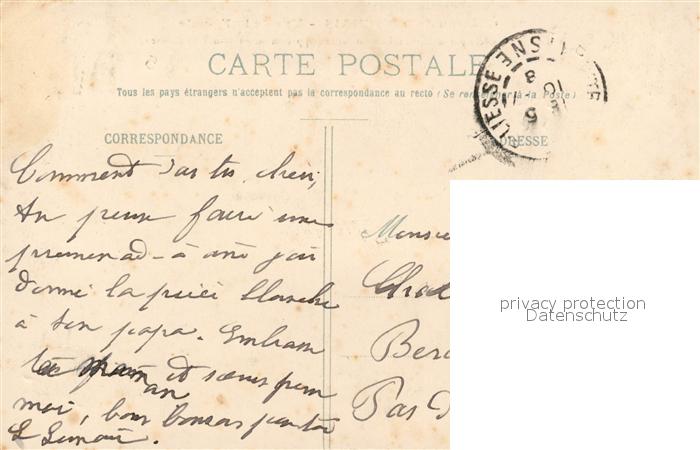 CARTE POSTALE
Tous les pays étrangers n'acceptent pas la correspondance au recto (Se renseigner à la Poste)
CORRESPONDANCE
ADRESSE
LIESSE AISNE
Comment vas tu, chéri,
tu peux faire une
promenad à âne j'ai
donné la pièce blanche
à ton papa. Embrasse
et sœurs pour
moi, bons baisers
Monsie
Berc
Pas d
privacy protection
Datenschutz